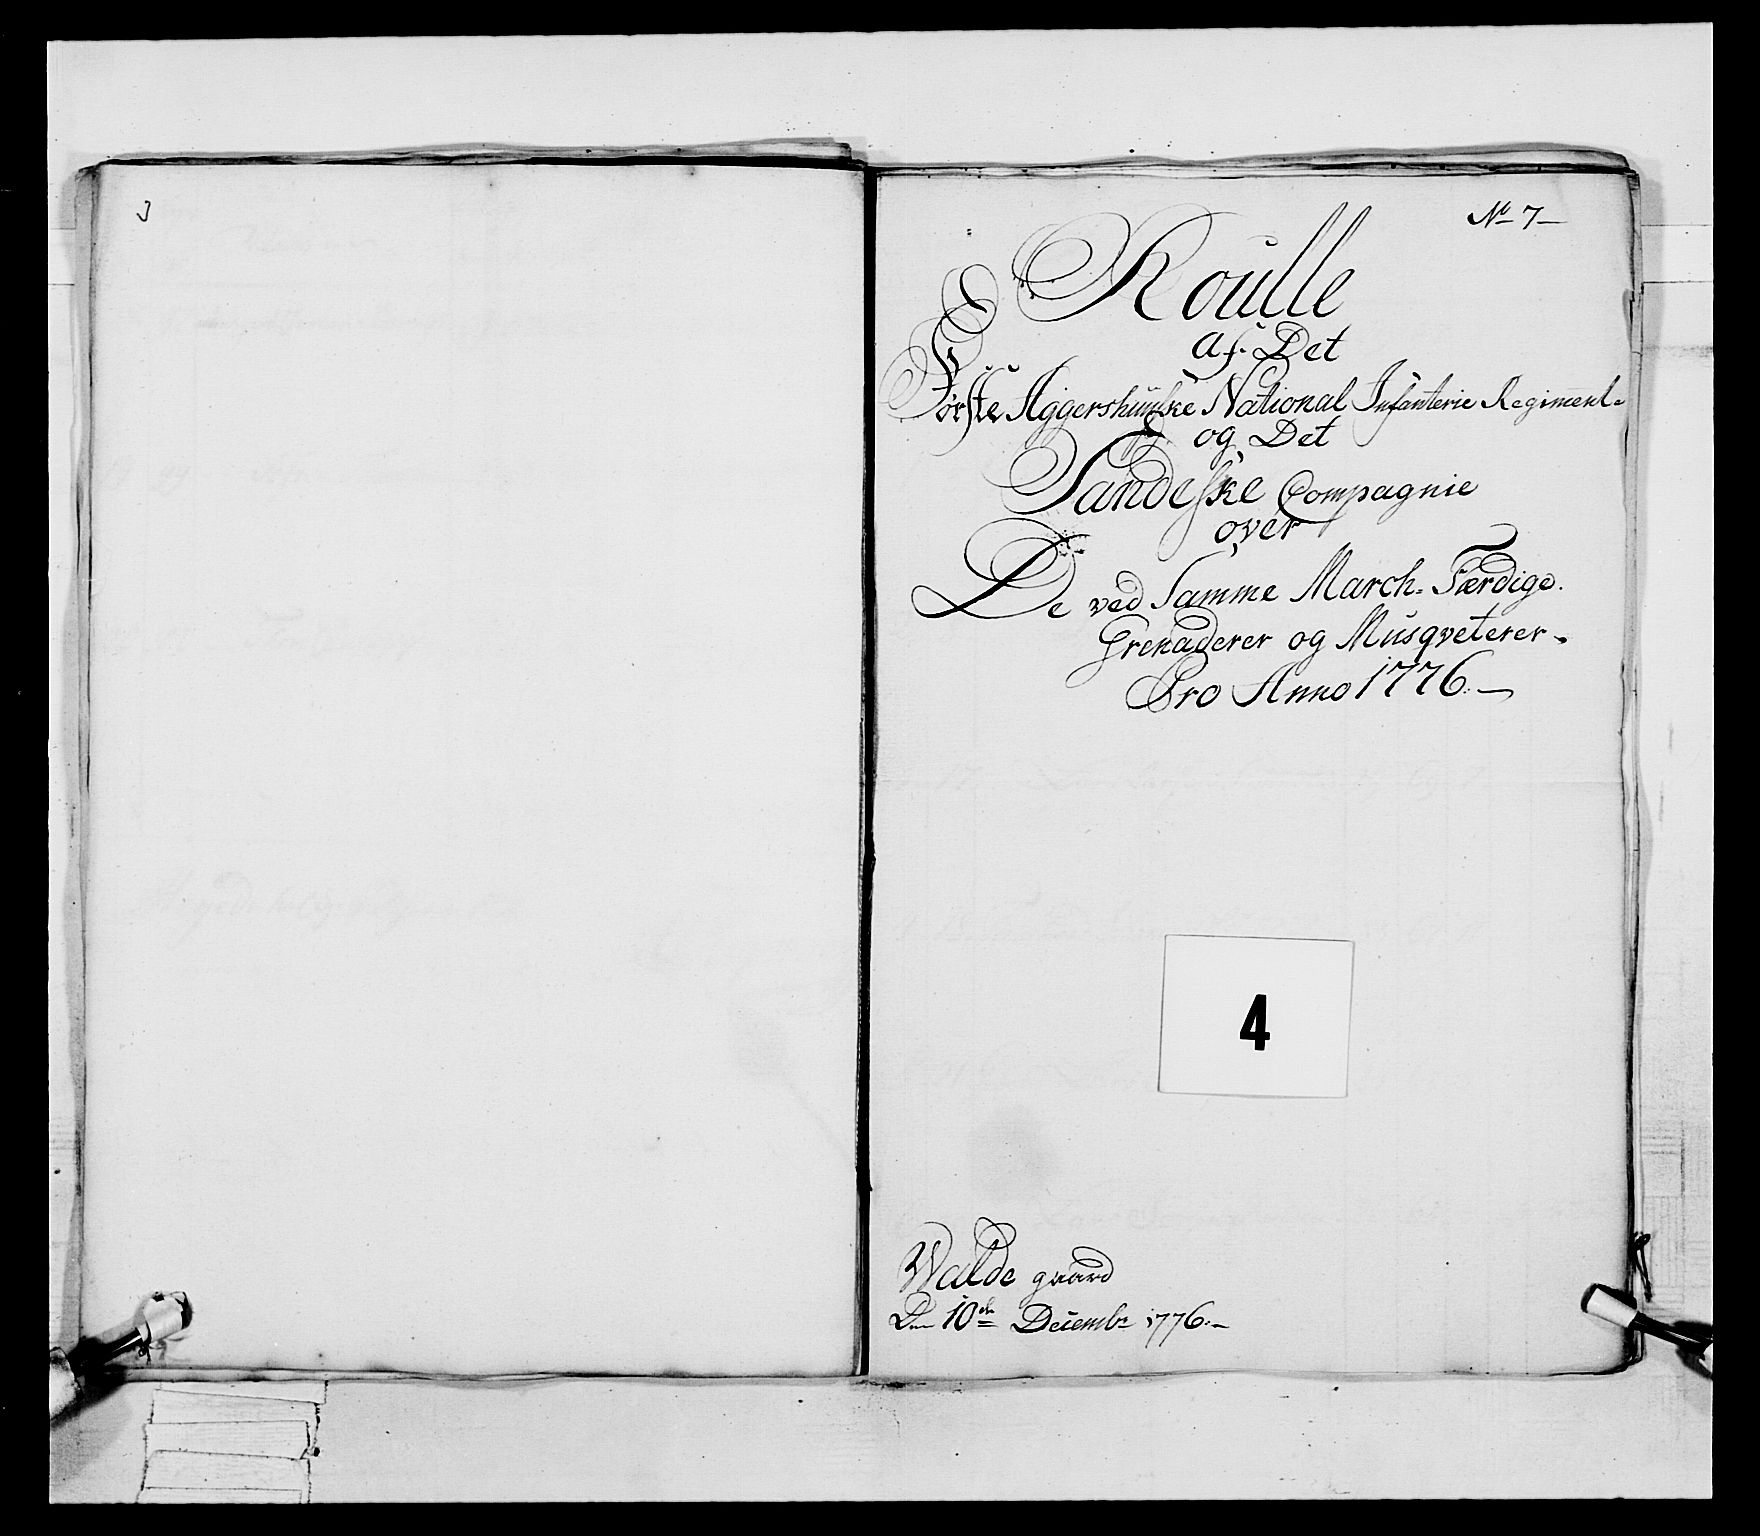 No 7
Roulle
af Det
Første Aggershuuske National Infanterie Regiment
og Det
Sandeske Compagnie
over
De ved Samme March-Færdige
Grenaderer og Musqveterer
Pro Anno 1776.
4
Walde gaard
Den 10de Decembr 1776.